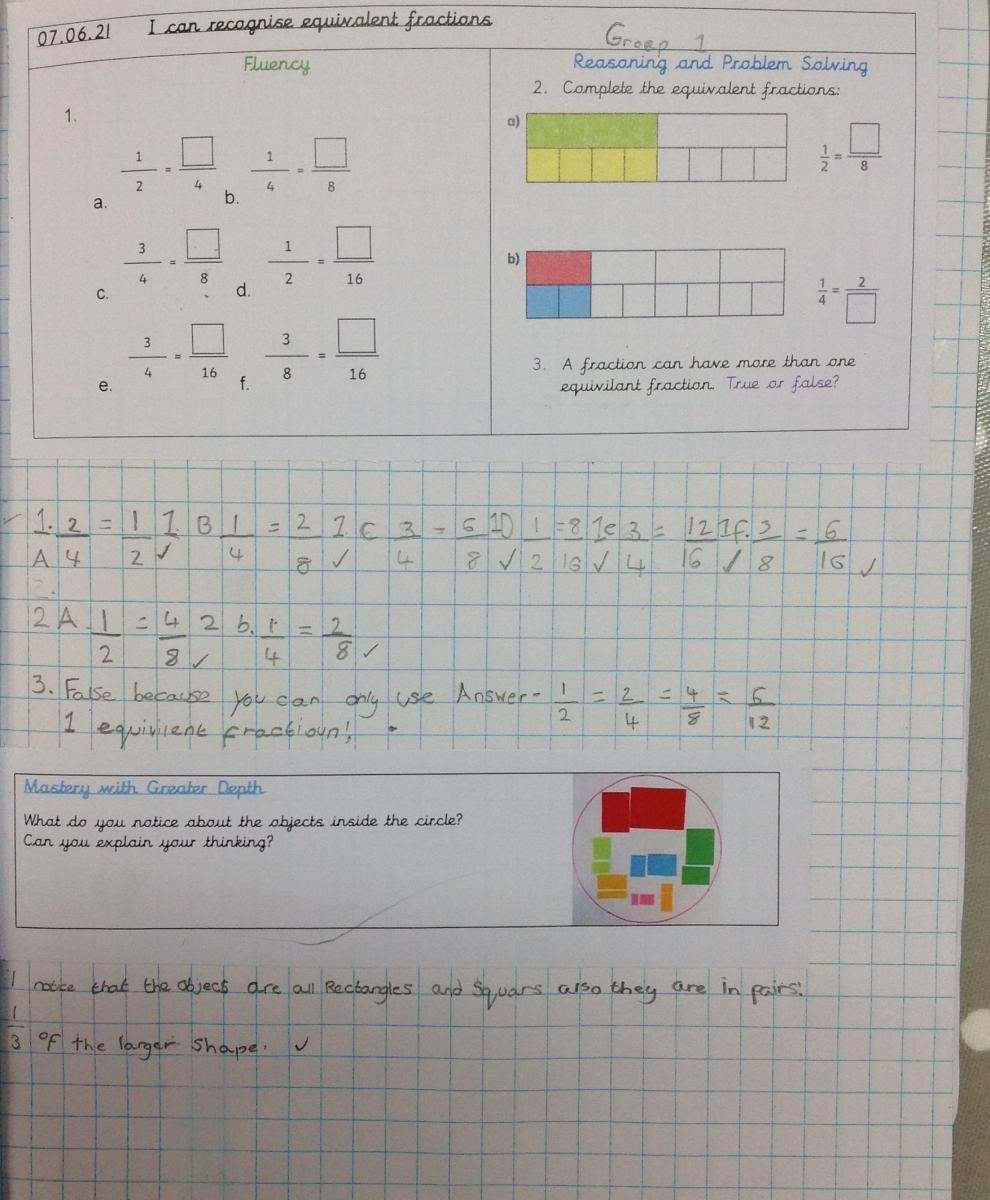 07.06.21 I can recognise equivalent fractions
Groep 1
Fluency
1.
a. 1/2 = □/4 b. 1/4 = □/8
c. 3/4 = □/8 d. 1/2 = □/16
e. 3/4 = □/16 f. 3/8 = □/16
Reasoning and Problem Solving
2. Complete the equivalent fractions:
a) 1/2 = □/8
b) 1/4 = 2/□
3. A fraction can have more than one
equivilant fraction. True or false?
✓ 1. A 2/4 = 1/2 ✓ 1. B 1/4 = 2/8 ✓ 1. C 3/4 = 6/8 ✓ 1D 1/2 = 8/16 ✓ 1e 3/4 = 12/16 ✓ 1f. 3/8 = 6/16 ✓
2.
2A. 1/2 = 4/8 ✓ 2 b. 1/4 = 2/8 ✓
3. False because you can only use Answer- 1/2 = 2/4 = 4/8 = 6/12
1 equivilent fractioun!
Mastery with Greater Depth
What do you notice about the objects inside the circle?
Can you explain your thinking?
I notice that the objects are all Rectangles and Squars also they are in pairs.
1/3 of the larger shape. ✓